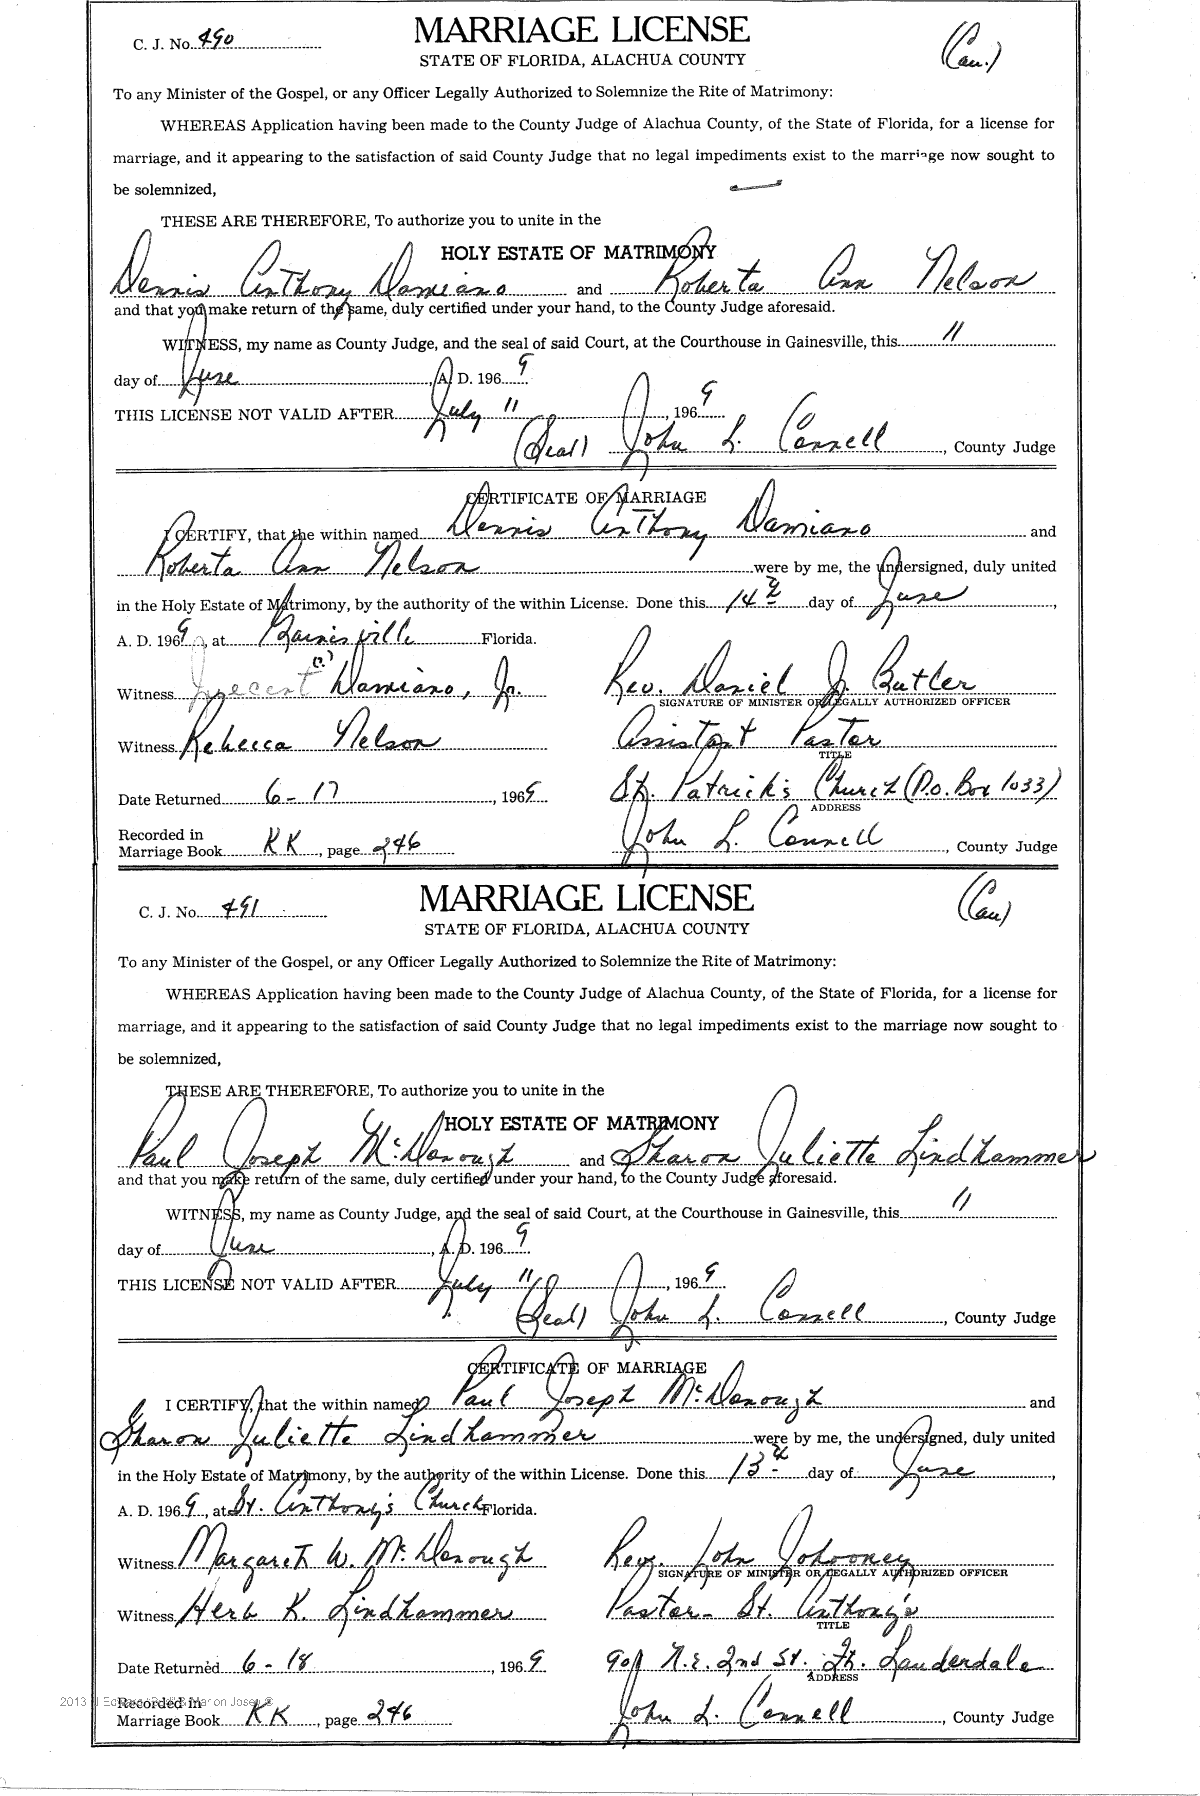 C. J. No. 490
MARRIAGE LICENSE
(Cau.)
STATE OF FLORIDA, ALACHUA COUNTY
To any Minister of the Gospel, or any Officer Legally Authorized to Solemnize the Rite of Matrimony:
WHEREAS Application having been made to the County Judge of Alachua County, of the State of Florida, for a license for
marriage, and it appearing to the satisfaction of said County Judge that no legal impediments exist to the marriage now sought to
be solemnized,
THESE ARE THEREFORE, To authorize you to unite in the
HOLY ESTATE OF MATRIMONY
Dennis Anthony Damiano and Roberta Ann Nelson
and that you make return of the same, duly certified under your hand, to the County Judge aforesaid.
WITNESS, my name as County Judge, and the seal of said Court, at the Courthouse in Gainesville, this 11
day of June, A. D. 1969
THIS LICENSE NOT VALID AFTER July 11, 1969
(Seal) John L. Connell, County Judge
CERTIFICATE OF MARRIAGE
I CERTIFY, that the within named Dennis Anthony Damiano and
Roberta Ann Nelson were by me, the undersigned, duly united
in the Holy Estate of Matrimony, by the authority of the within License. Done this 14th day of June,
A. D. 1969, at Gainisville Florida.
(?)
Witness Damiano, Jr. Rev. Daniel J. Butler
SIGNATURE OF MINISTER OR LEGALLY AUTHORIZED OFFICER
Witness Rebecca Nelson Assistant Pastor
TITLE
Date Returned 6-17, 1969 St. Patrick's Church (P.O. Box 1033)
ADDRESS
Recorded in
Marriage Book KK, page 246 John L. Connell, County Judge
C. J. No. 491
MARRIAGE LICENSE
(Cau)
STATE OF FLORIDA, ALACHUA COUNTY
To any Minister of the Gospel, or any Officer Legally Authorized to Solemnize the Rite of Matrimony:
WHEREAS Application having been made to the County Judge of Alachua County, of the State of Florida, for a license for
marriage, and it appearing to the satisfaction of said County Judge that no legal impediments exist to the marriage now sought to
be solemnized,
THESE ARE THEREFORE, To authorize you to unite in the
HOLY ESTATE OF MATRIMONY
Paul Joseph McDonough and Sharon Juliette Lindhammer
and that you make return of the same, duly certified under your hand, to the County Judge aforesaid.
WITNESS, my name as County Judge, and the seal of said Court, at the Courthouse in Gainesville, this 11
day of June, A. D. 1969
THIS LICENSE NOT VALID AFTER July 11, 1969
(Seal) John L. Connell, County Judge
CERTIFICATE OF MARRIAGE
I CERTIFY, that the within named Paul Joseph McDonough and
Sharon Juliette Lindhammer were by me, the undersigned, duly united
in the Holy Estate of Matrimony, by the authority of the within License. Done this 13th day of June,
A. D. 1969, at St. Anthony's Church Florida.
Witness Margaret W. McDonough Rev. John
SIGNATURE OF MINISTER OR LEGALLY AUTHORIZED OFFICER
Witness Herb K. Lindhammer Pastor - St. Anthony's
TITLE
Date Returned 6-18, 1969 901 N.E. 2nd St. Ft. Lauderdale
ADDRESS
Recorded in
Marriage Book KK, page 246 John L. Connell, County Judge